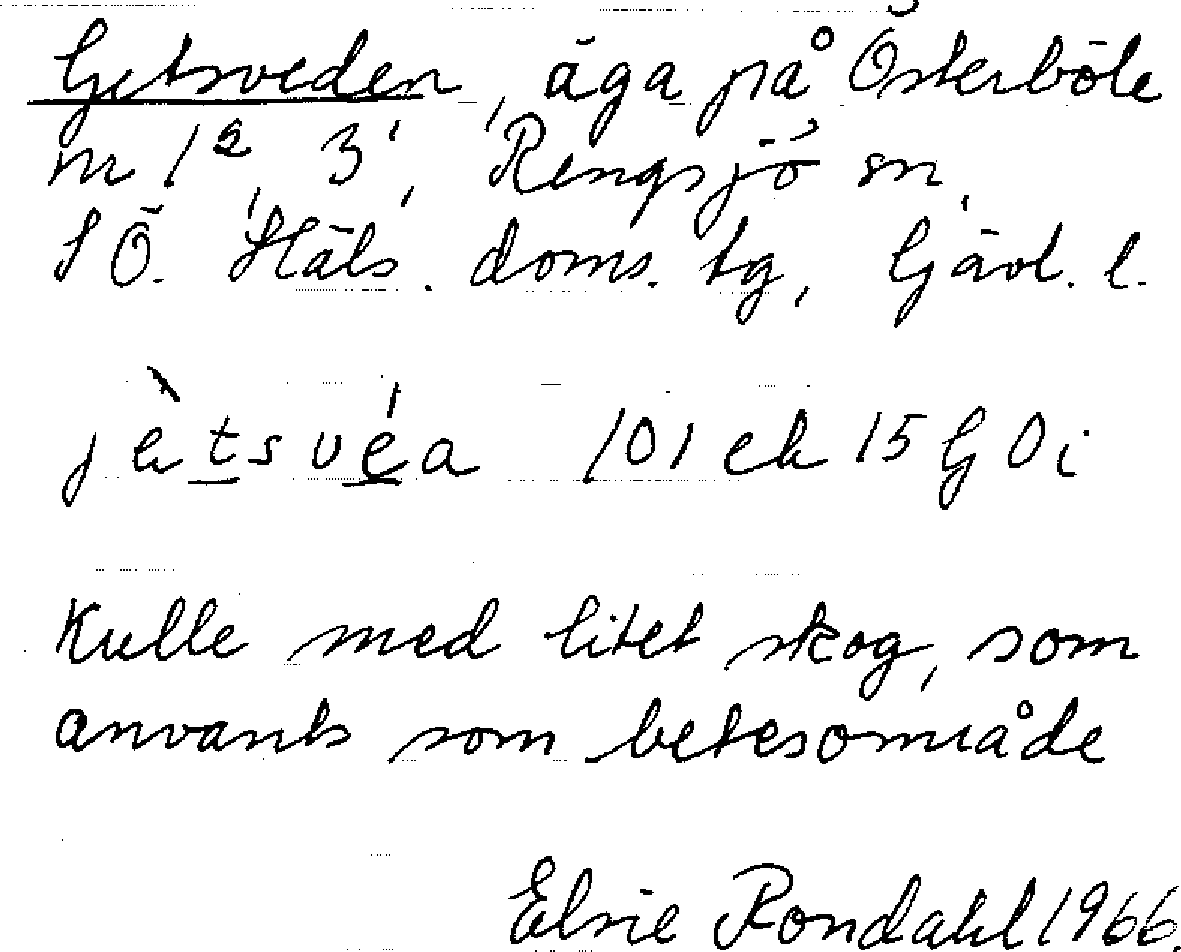 Getsveden, äga på Österböle
nr 1², 3¹, Rengsjö sn,
SÖ. Häls. doms. tg, Gävl. l.
jètsvéa 101 ek 15 G 0 i
Kulle med litet skog, som
använts som betesområde
Elsie Rondahl 1966.